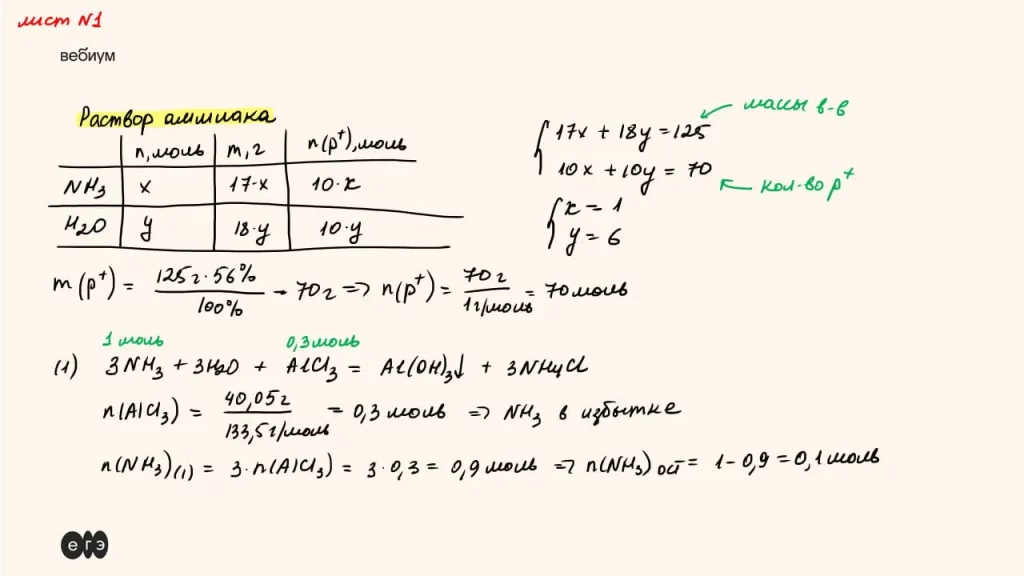 лист N1
вебиум
Раствор аммиака
n, моль m, г n(p⁺), моль
NH₃ x 17·x 10·x
H₂O y 18·y 10·y
массы в-в
17x + 18y = 125
10x + 10y = 70
кол-во p⁺
x = 1
y = 6
m(p⁺) = 125г·56% / 100% - 70г => n(p⁺) = 70г / 1г/моль = 70моль
1 моль 0,3моль
(1) 3NH₃ + 3H₂O + AlCl₃ = Al(OH)₃↓ + 3NH₄Cl
n(AlCl₃) = 40,05г / 133,5г/моль = 0,3 моль => NH₃ в избытке
n(NH₃)₍₁₎ = 3·n(AlCl₃) = 3·0,3 = 0,9 моль => n(NH₃)ост = 1-0,9 = 0,1 моль
егэ